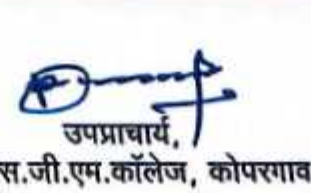 उपप्राचार्य,
स.जी.एम.कॉलेज, कोपरगाव